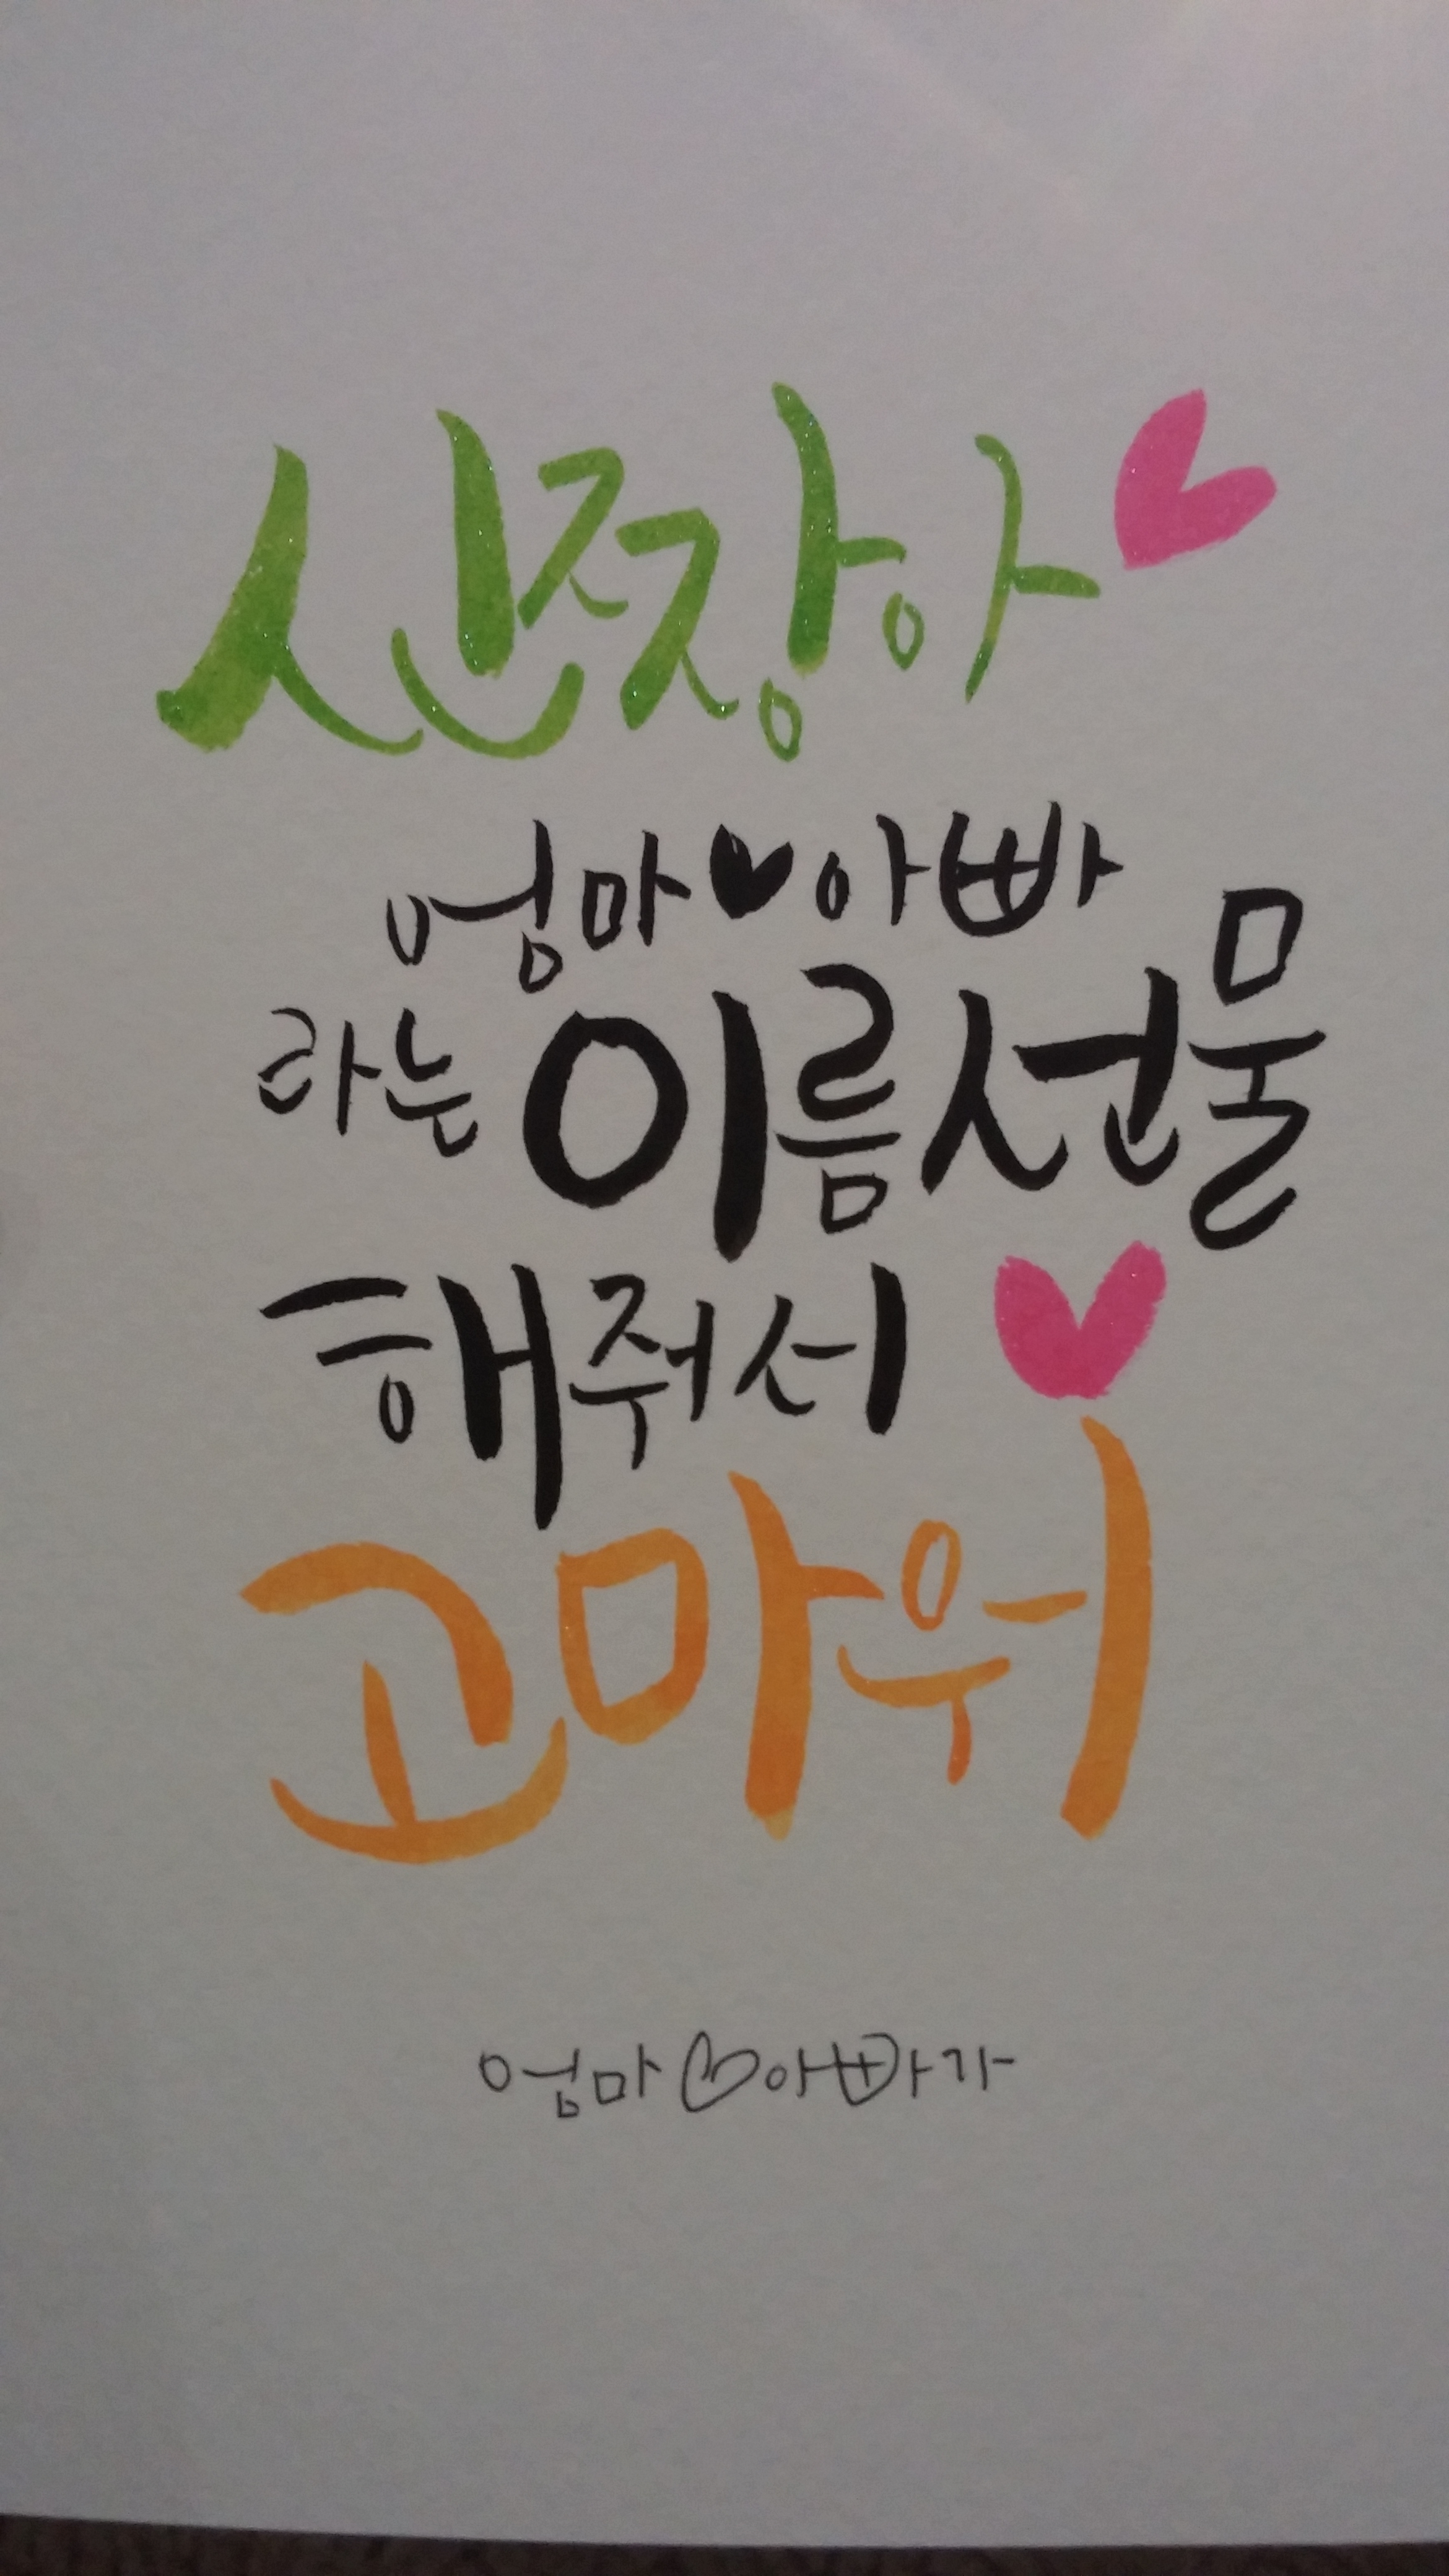 신짱아♥
엄마♥아빠
라는 이름선물
해줘서♥
고마워
엄마♡아빠가